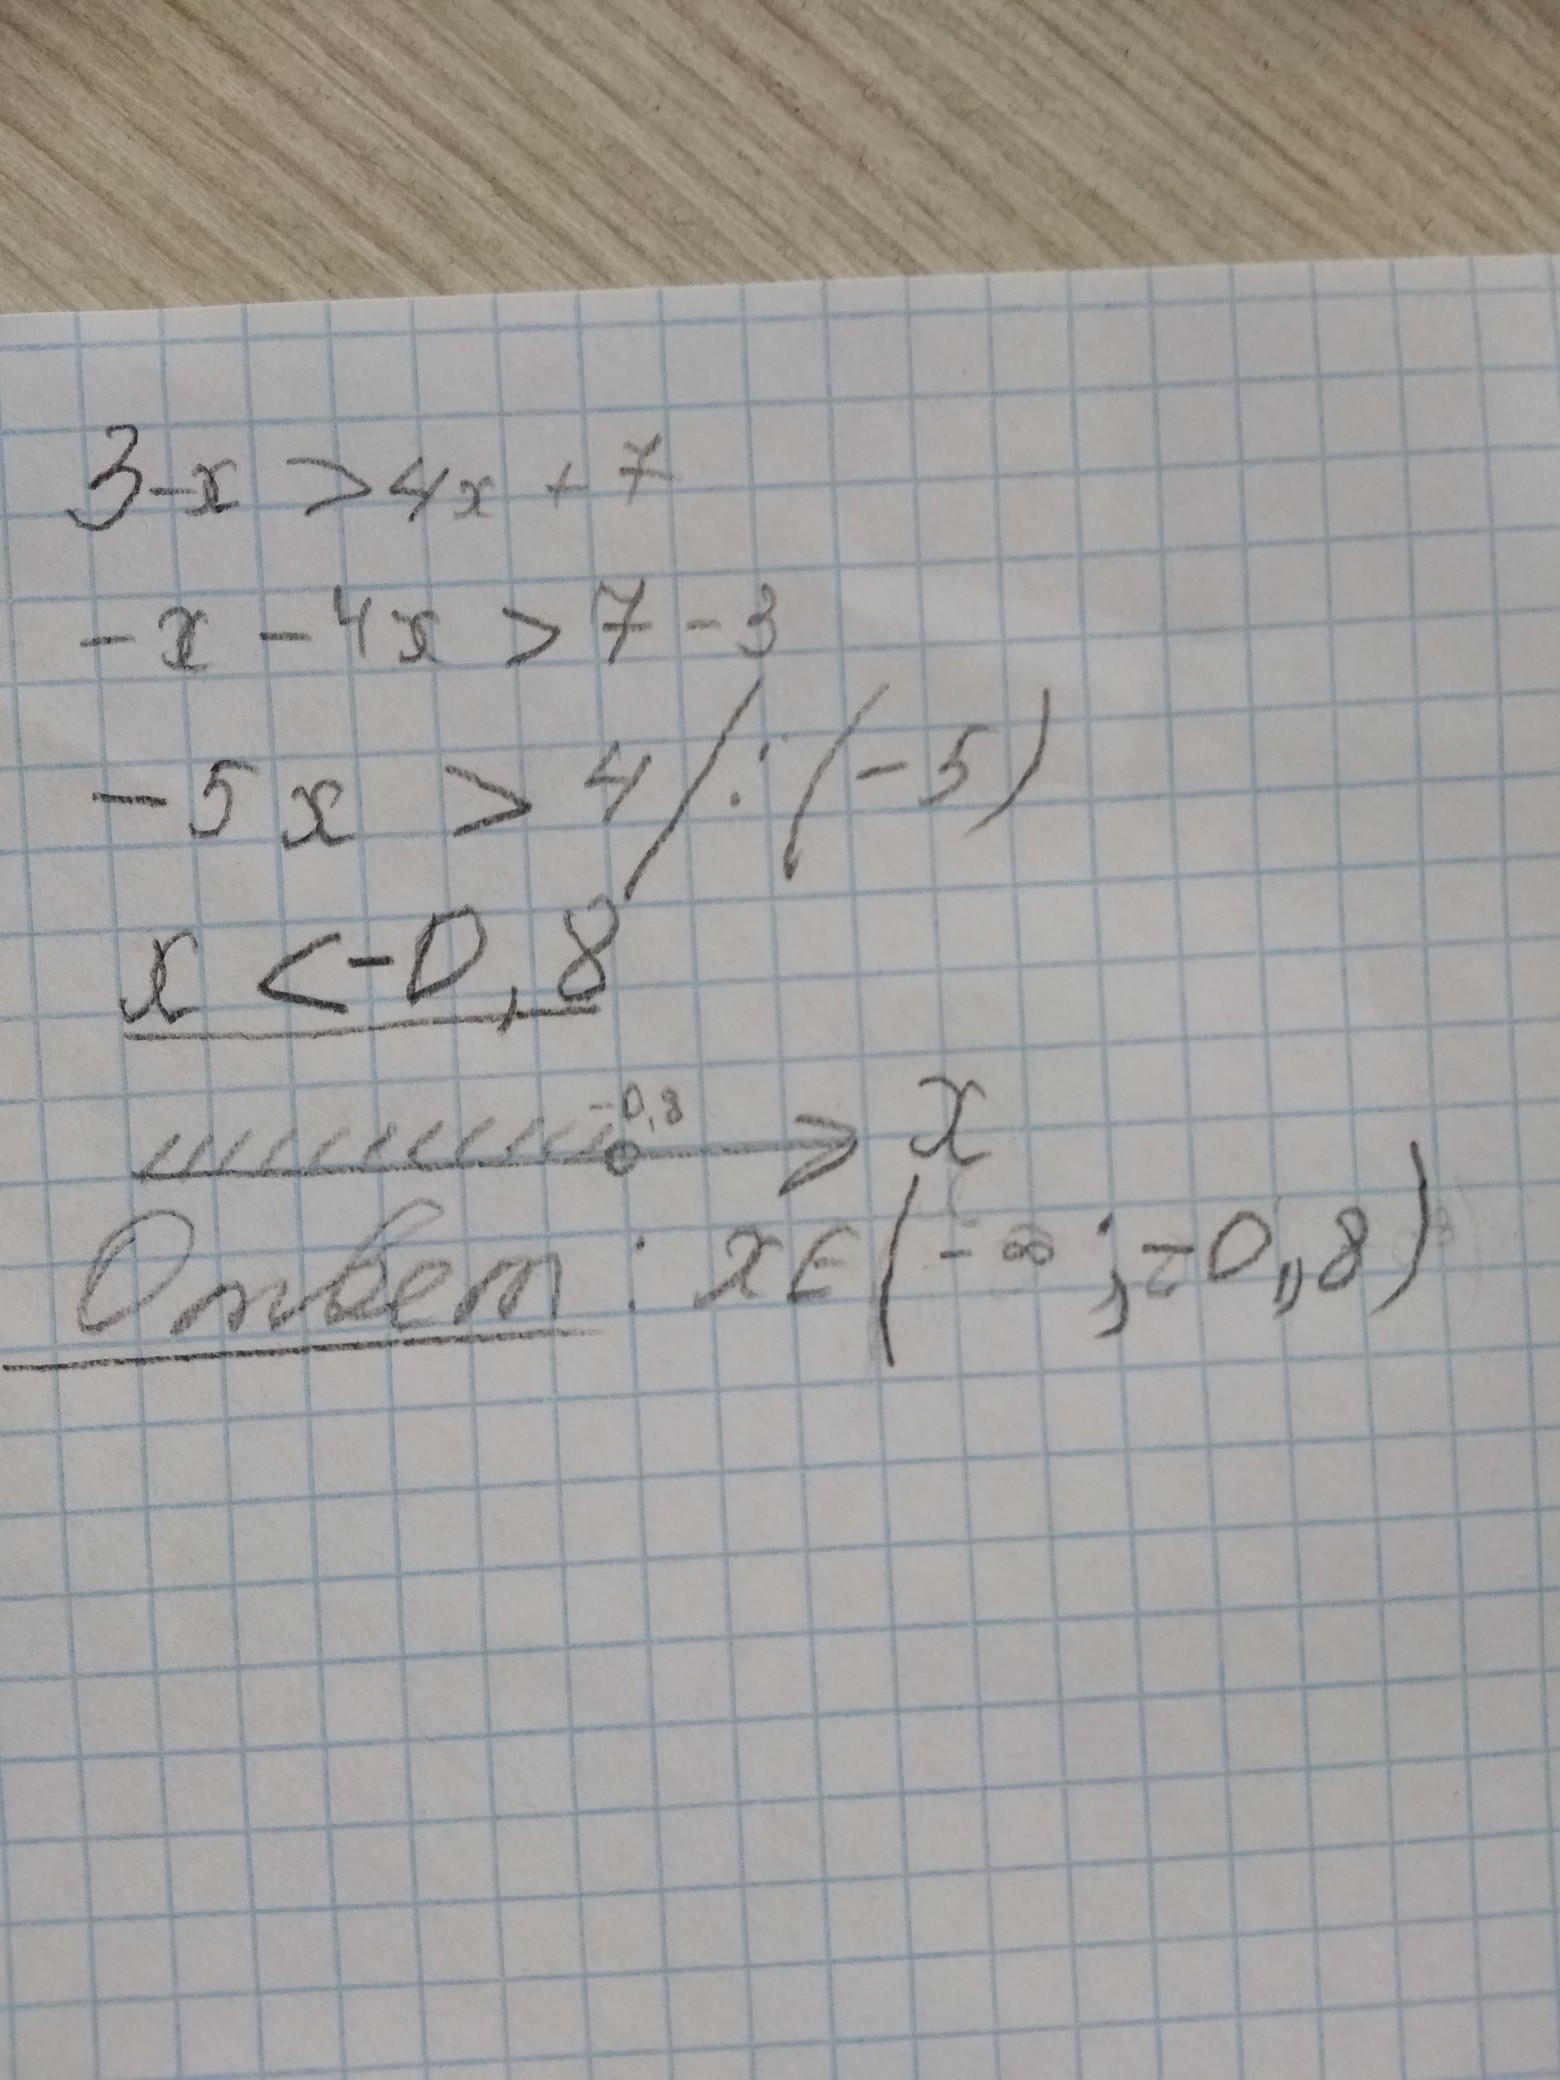 3-x > 4x + 7
-x - 4x > 7 - 3
-5x > 4 / : (-5)
x < -0,8
-0,8
x
Ответ: x∈(-∞; -0,8)